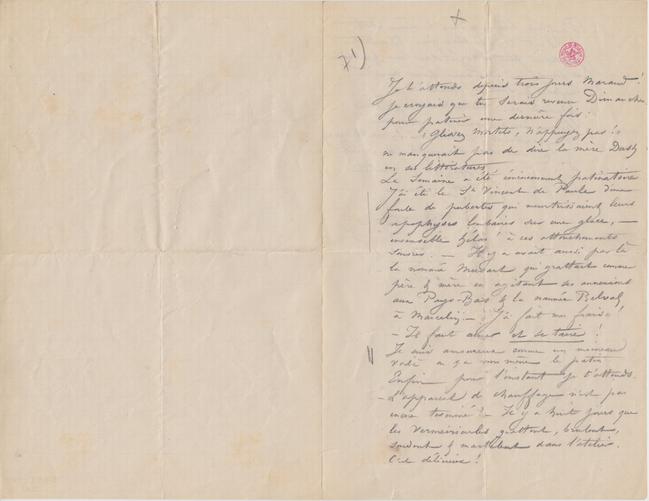 71)
Je t'attends depuis trois jours Maraud!
je croyais que tu serais revenu Dimanche
pour patiner une dernière fois.
"Glissez Mortels, n'appuyez pas!"
ne manquerait pas de dire la mère Dasty
en ses littératures
La Semaine a été éminemment patinatoire
J'ai été le St Vincent de Paule d'une
foule de pubertés qui meurtrissaient leurs
apophyses lombaires sur une glace, —
insensible hélas! à ces attouchements
— Il y avait aussi par là
la nommée qui grattait comme
père & mère en agitant ses annexions
aux Pays-Bas & la nommée
à — J'ai fait mes frais!
— Il faut aimer et se taire!
Je suis amoureux comme un moineau
m'a mené le patin
Enfin pour l'instant je t'attends.
— L'appareil de chauffage n'est pas
encore terminé! — Il y a huit jours que
les grattent, brûlent,
soudent & martèlent dans l'atelier.
C'est délicieux!